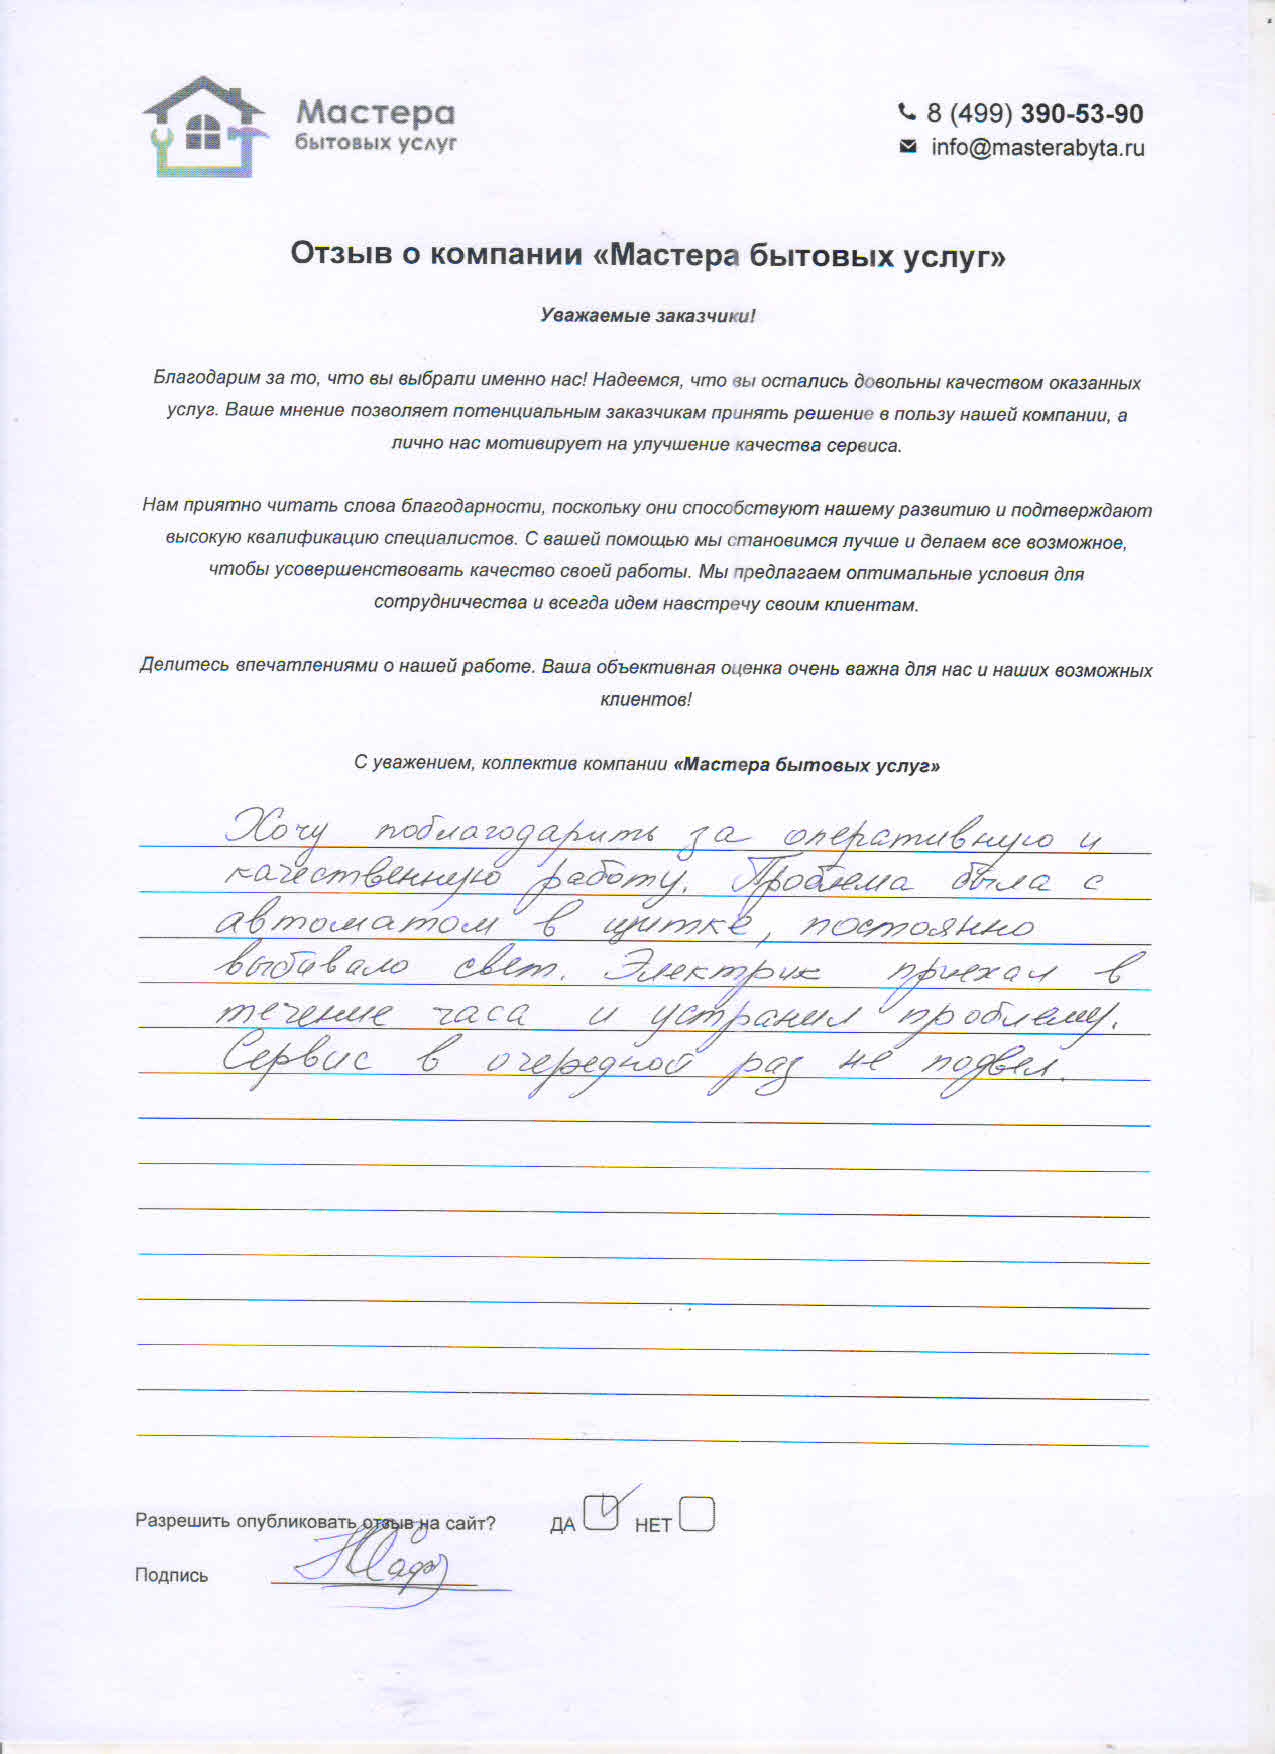 Мастера
бытовых услуг
8 (499) 390-53-90
info@masterabyta.ru
Отзыв о компании «Мастера бытовых услуг»
Уважаемые заказчики!
Благодарим за то, что вы выбрали именно нас! Надеемся, что вы остались довольны качеством оказанных
услуг. Ваше мнение позволяет потенциальным заказчикам принять решение в пользу нашей компании, а
лично нас мотивирует на улучшение качества сервиса.
Нам приятно читать слова благодарности, поскольку они способствуют нашему развитию и подтверждают
высокую квалификацию специалистов. С вашей помощью мы становимся лучше и делаем все возможное,
чтобы усовершенствовать качество своей работы. Мы предлагаем оптимальные условия для
сотрудничества и всегда идем навстречу своим клиентам.
Делитесь впечатлениями о нашей работе. Ваша объективная оценка очень важна для нас и наших возможных
клиентов!
С уважением, коллектив компании «Мастера бытовых услуг»
Хочу поблагодарить за оперативную и
качественную работу. Проблема была с
автоматом в щитке, постоянно
выбивало свет. Электрик приехал в
течение часа и устранил проблему.
Сервис в очередной раз не подвел.
Разрешить опубликовать отзыв на сайт? ДА НЕТ
Подпись